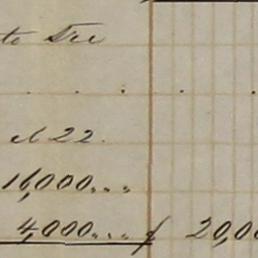 te Tre
. . . . .
el 22.
16,000 . . .
4,000 . . . $ 20,00